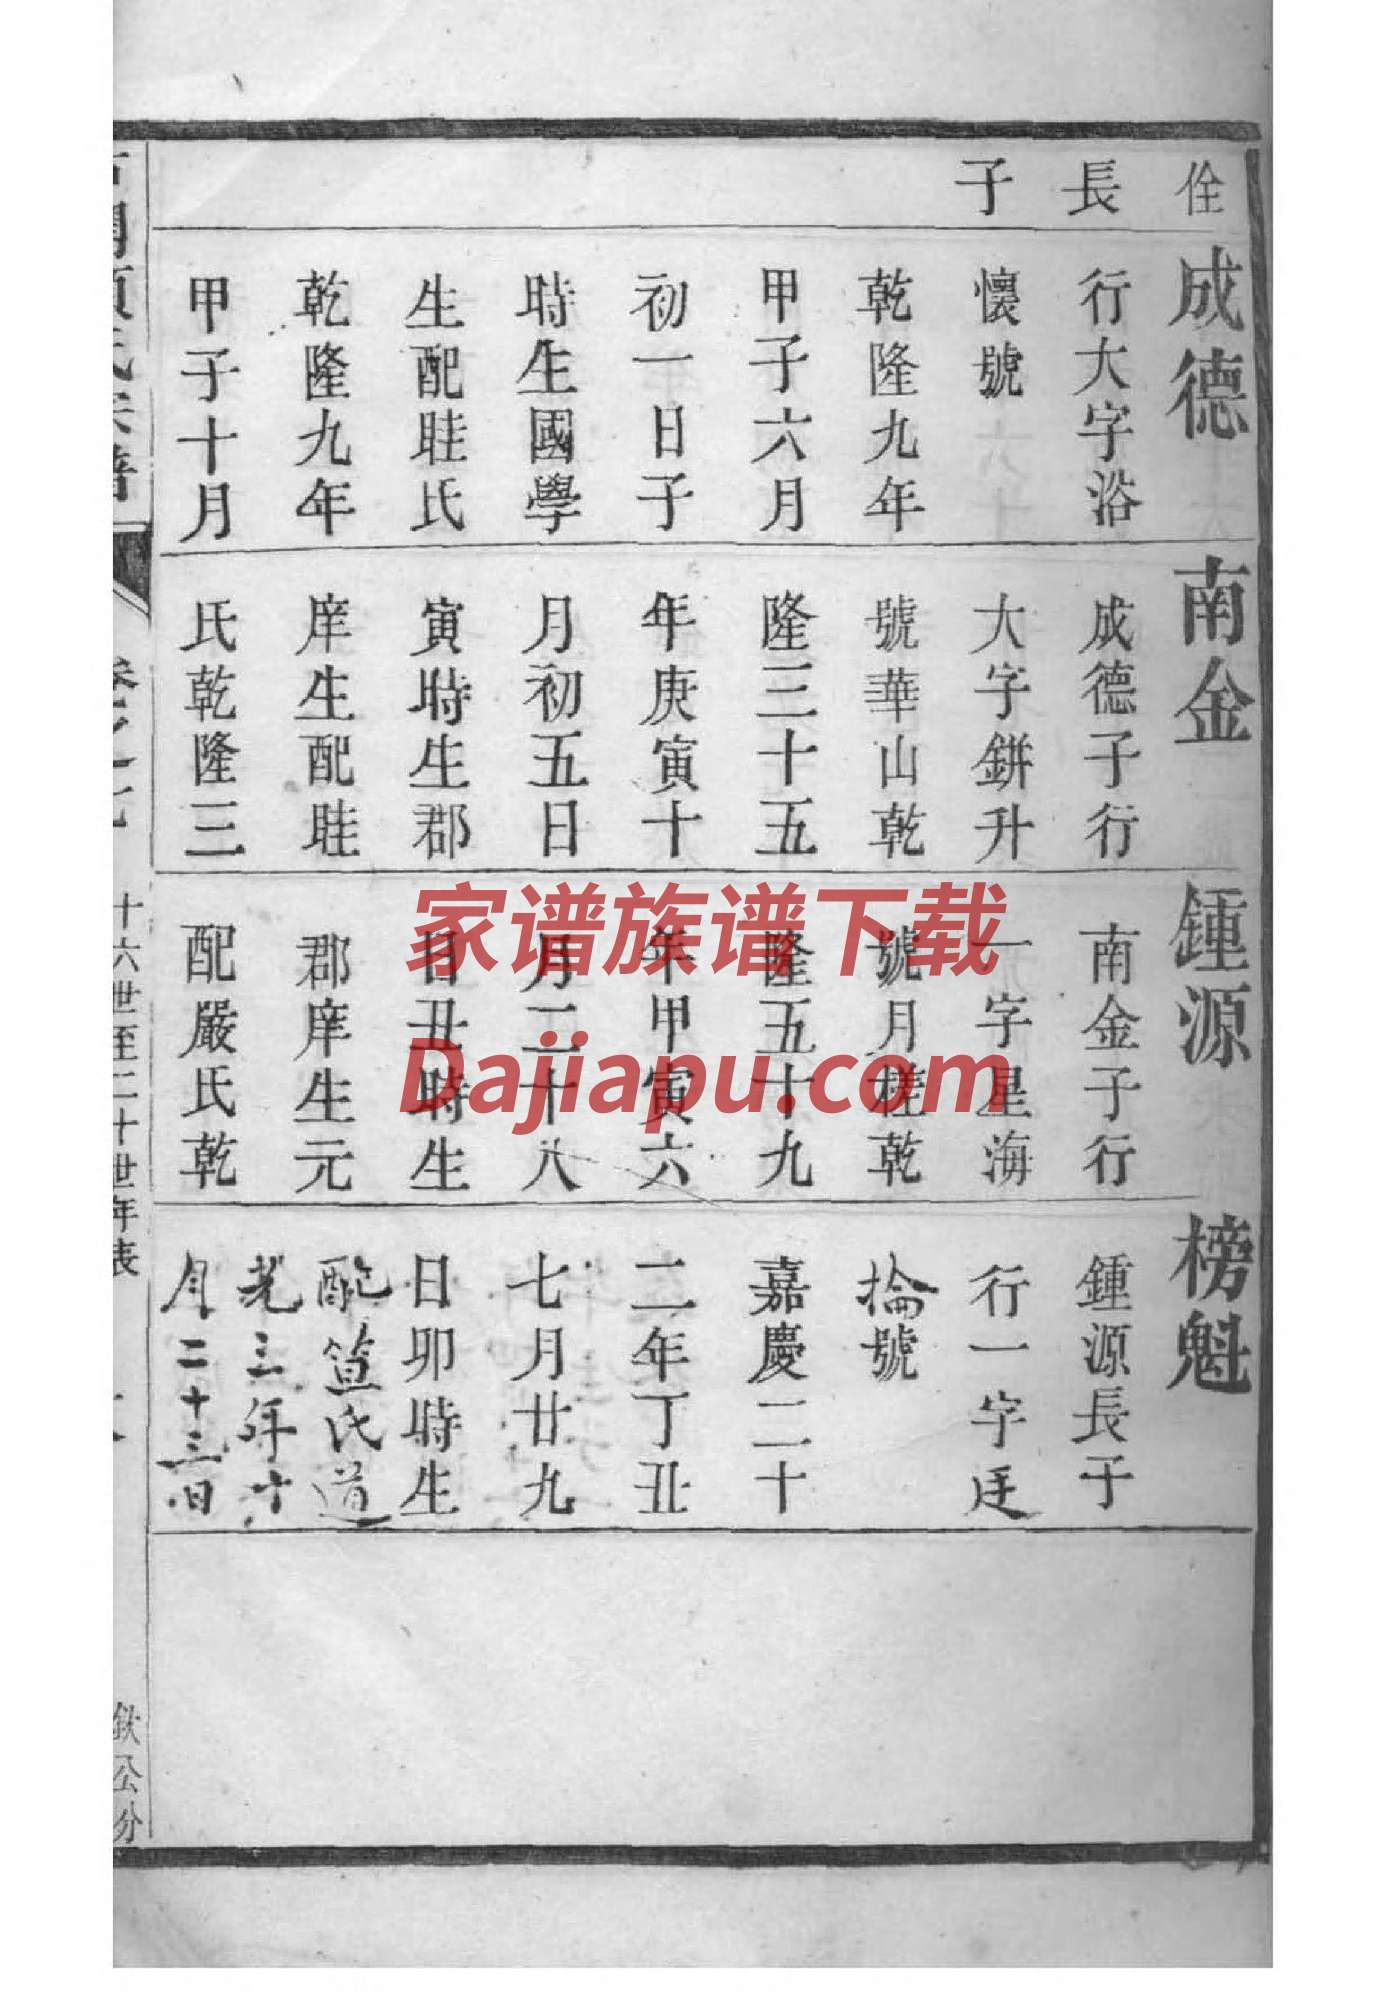 佺
長
子
成德
行大字浴
懷號
乾隆九年
甲子六月
初一日子
時生國學
生配眭氏
乾隆九年
甲子十月
南金
成德子行
大字鉼升
號華山乾
隆三十五
年庚寅十
月初五日
寅時生郡
庠生配眭
氏乾隆三
鍾源
南金子行
一字星海
號月桂乾
隆五十九
年甲寅六
月二十八
日丑時生
郡庠生元
配嚴氏乾
榜魁
鍾源長子
行一字廷
掄號
嘉慶二十
二年丁丑
七月廿九
日卯時生
配笪氏道
光三年十
月二十三日
氏宗譜
卷之七
十六世至二十世年表
欽公分
家谱族谱下载
Dajiapu.com